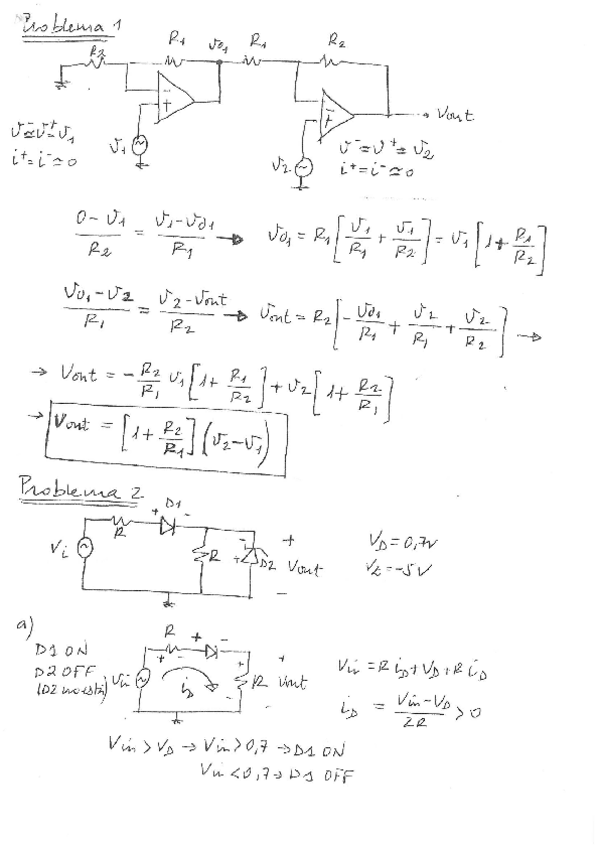 Problema 1
R2 R1 vo1 R1 R2
− + − + → Vout
v⁻≃v⁺=v1
i⁺=i⁻≃0
v1
v2
v⁻≃v⁺=v2
i⁺=i⁻≃0
(0−v1)/R2 = (v1−vo1)/R1 → vo1 = R1[v1/R1 + v1/R2] = v1[1+R1/R2]
(vo1−v2)/R1 = (v2−vout)/R2 → vout = R2[−vo1/R1 + v2/R1 + v2/R2] →
→ Vout = −R2/R1 v1[1+R1/R2] + v2[1+R2/R1]
→ Vout = [1+R2/R1](v2−v1)
Problema 2
+ D1 −
R
Vi R − + D2 + Vout −
VD=0,7v
Vz=−5V
a)
D1 ON
D2 OFF
(D2 no está)
R + −
+ −
Vin iD + R − + Vout −
Vin = R iD+VD+R iD
iD = (Vin−VD)/2R > 0
Vin > VD → Vin > 0,7 → D1 ON
Vin < 0,7 → D1 OFF